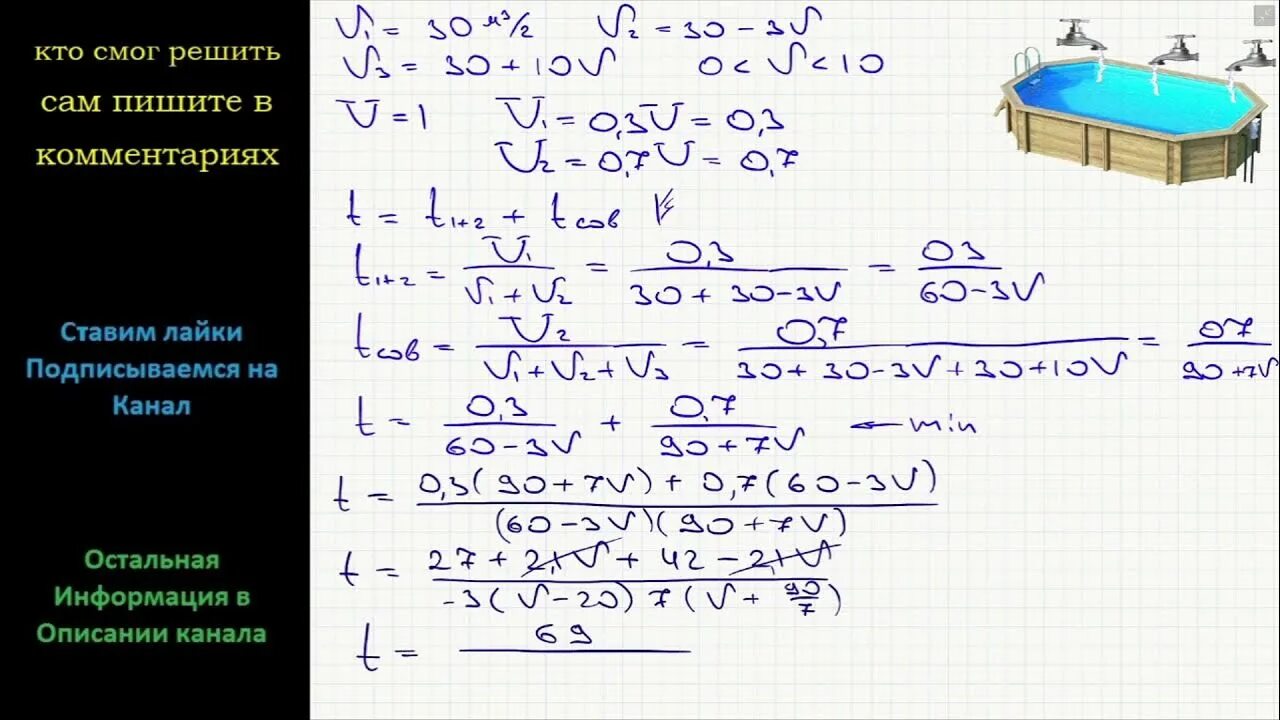 кто смог решить
сам пишите в
комментариях
Ставим лайки
Подписываемся на
Канал
Остальная
Информация в
Описании канала
V₁ = 30 м³/г V₂ = 30 - 3V
V₃ = 30 + 10V 0 < V < 10
V = 1 V₁ = 0,3V = 0,3
V₂ = 0,7V = 0,7
t = t₁₊₂ + t сов
t₁₊₂ = V₁/(V₁ + V₂) = 0,3/(30 + 30 - 3V) = 03/(60 - 3V)
t сов = V₂/(V₁ + V₂ + V₃) = 0,7/(30 + 30 - 3V + 30 + 10V) = 07/(90 + 7V)
t = 0,3/(60 - 3V) + 0,7/(90 + 7V) ← min
t = (0,3(90 + 7V) + 0,7(60 - 3V))/((60 - 3V)(90 + 7V))
t = (27 + 2,1V + 42 - 2,1V)/(-3(V - 20) 7(V + 90/7))
t = 69